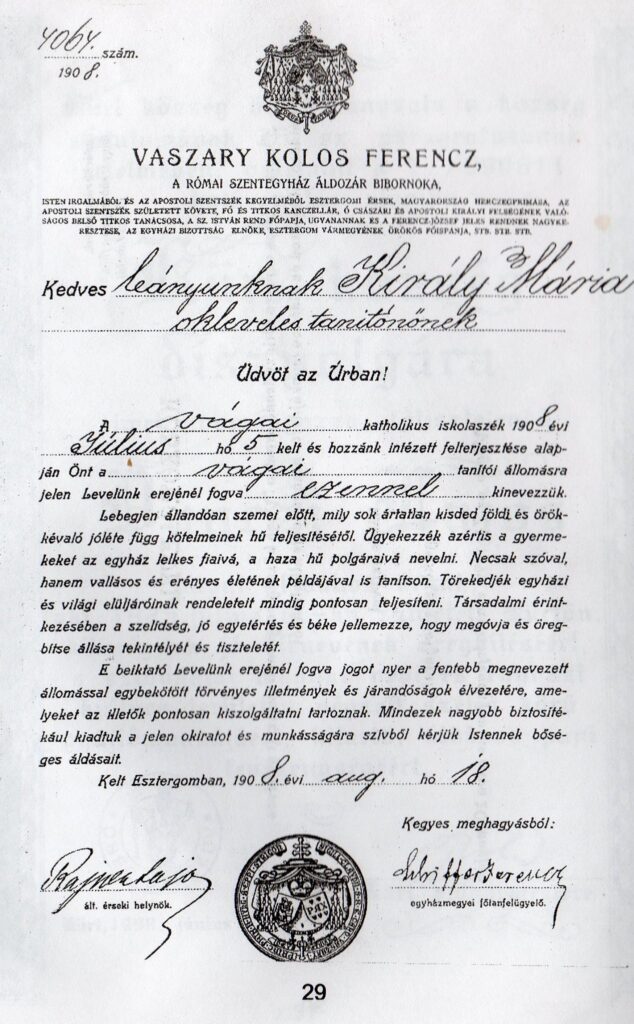 4064. szám.
1908.
VASZARY KOLOS FERENCZ,
A RÓMAI SZENTEGYHÁZ ÁLDOZÁR BIBORNOKA,
ISTEN IRGALMÁBÓL ÉS AZ APOSTOLI SZENTSZÉK KEGYELMÉBŐL ESZTERGOMI ÉRSEK, MAGYARORSZÁG HERCZEGPRIMÁSA, AZ
APOSTOLI SZENTSZÉK SZÜLETETT KÖVETE, FŐ ÉS TITKOS KANCZELLÁR, Ő CSÁSZÁRI ÉS APOSTOLI KIRÁLYI FELSÉGÉNEK VALÓ-
SÁGOS BELSŐ TITKOS TANÁCSOSA, A SZ. ISTVÁN REND FŐPAPJA, UGYANANNAK ÉS A FERENCZ JÓZSEF JELES RENDNEK NAGYKE-
RESZTESE, AZ EGYHÁZI BIZOTTSÁG ELNÖKE, ESZTERGOM VÁRMEGYÉNEK ÖRÖKÖS FŐISPÁNJA, STB. STB. STB.
Kedves leányunknak Király Mária
okleveles tanítónőnek
Üdvöt az Úrban!
A vágai katholikus iskolaszék 1908 évi
Július hó 5 kelt és hozzánk intézett felterjesztése alap-
ján Önt a vágai tanítói állomásra
jelen Levelünk erejénél fogva ezennel kinevezzük.
Lebegjen állandóan szemei előtt, mily sok ártatlan kisded földi és örök-
kévaló jóléte függ kötelmeinek hű teljesítésétől. Ügyekezzék azértis a gyerme-
keket az egyház lelkes fiaivá, a haza hű polgáraivá nevelni. Necsak szóval,
hanem vallásos és erényes életének példájával is tanitson. Törekedjék egyházi
és világi elüljáróinak rendeleteit mindig pontosan teljesíteni. Társadalmi érint-
kezésében a szelidség, jó egyetértés és béke jellemezze, hogy megóvja és öreg-
bítse állása tekintélyét és tiszteletét.
E beiktató Levelünk erejénél fogva jogot nyer a fentebb megnevezett
állomással egybekötött törvényes illetmények és járandóságok élvezetére, ame-
lyeket az illetők pontosan kiszolgáltatni tartoznak. Mindezek nagyobb biztosíté-
kául kiadtuk a jelen okiratot és munkásságára szívből kérjük Istennek bősé-
ges áldásait.
Kelt Esztergomban, 1908. évi aug. hó 18.
Kegyes meghagyásból:
Rajner Lajos
ált. érseki helynök.
Schiffer Ferencz
egyházmegyei főtanfelügyelő.
29